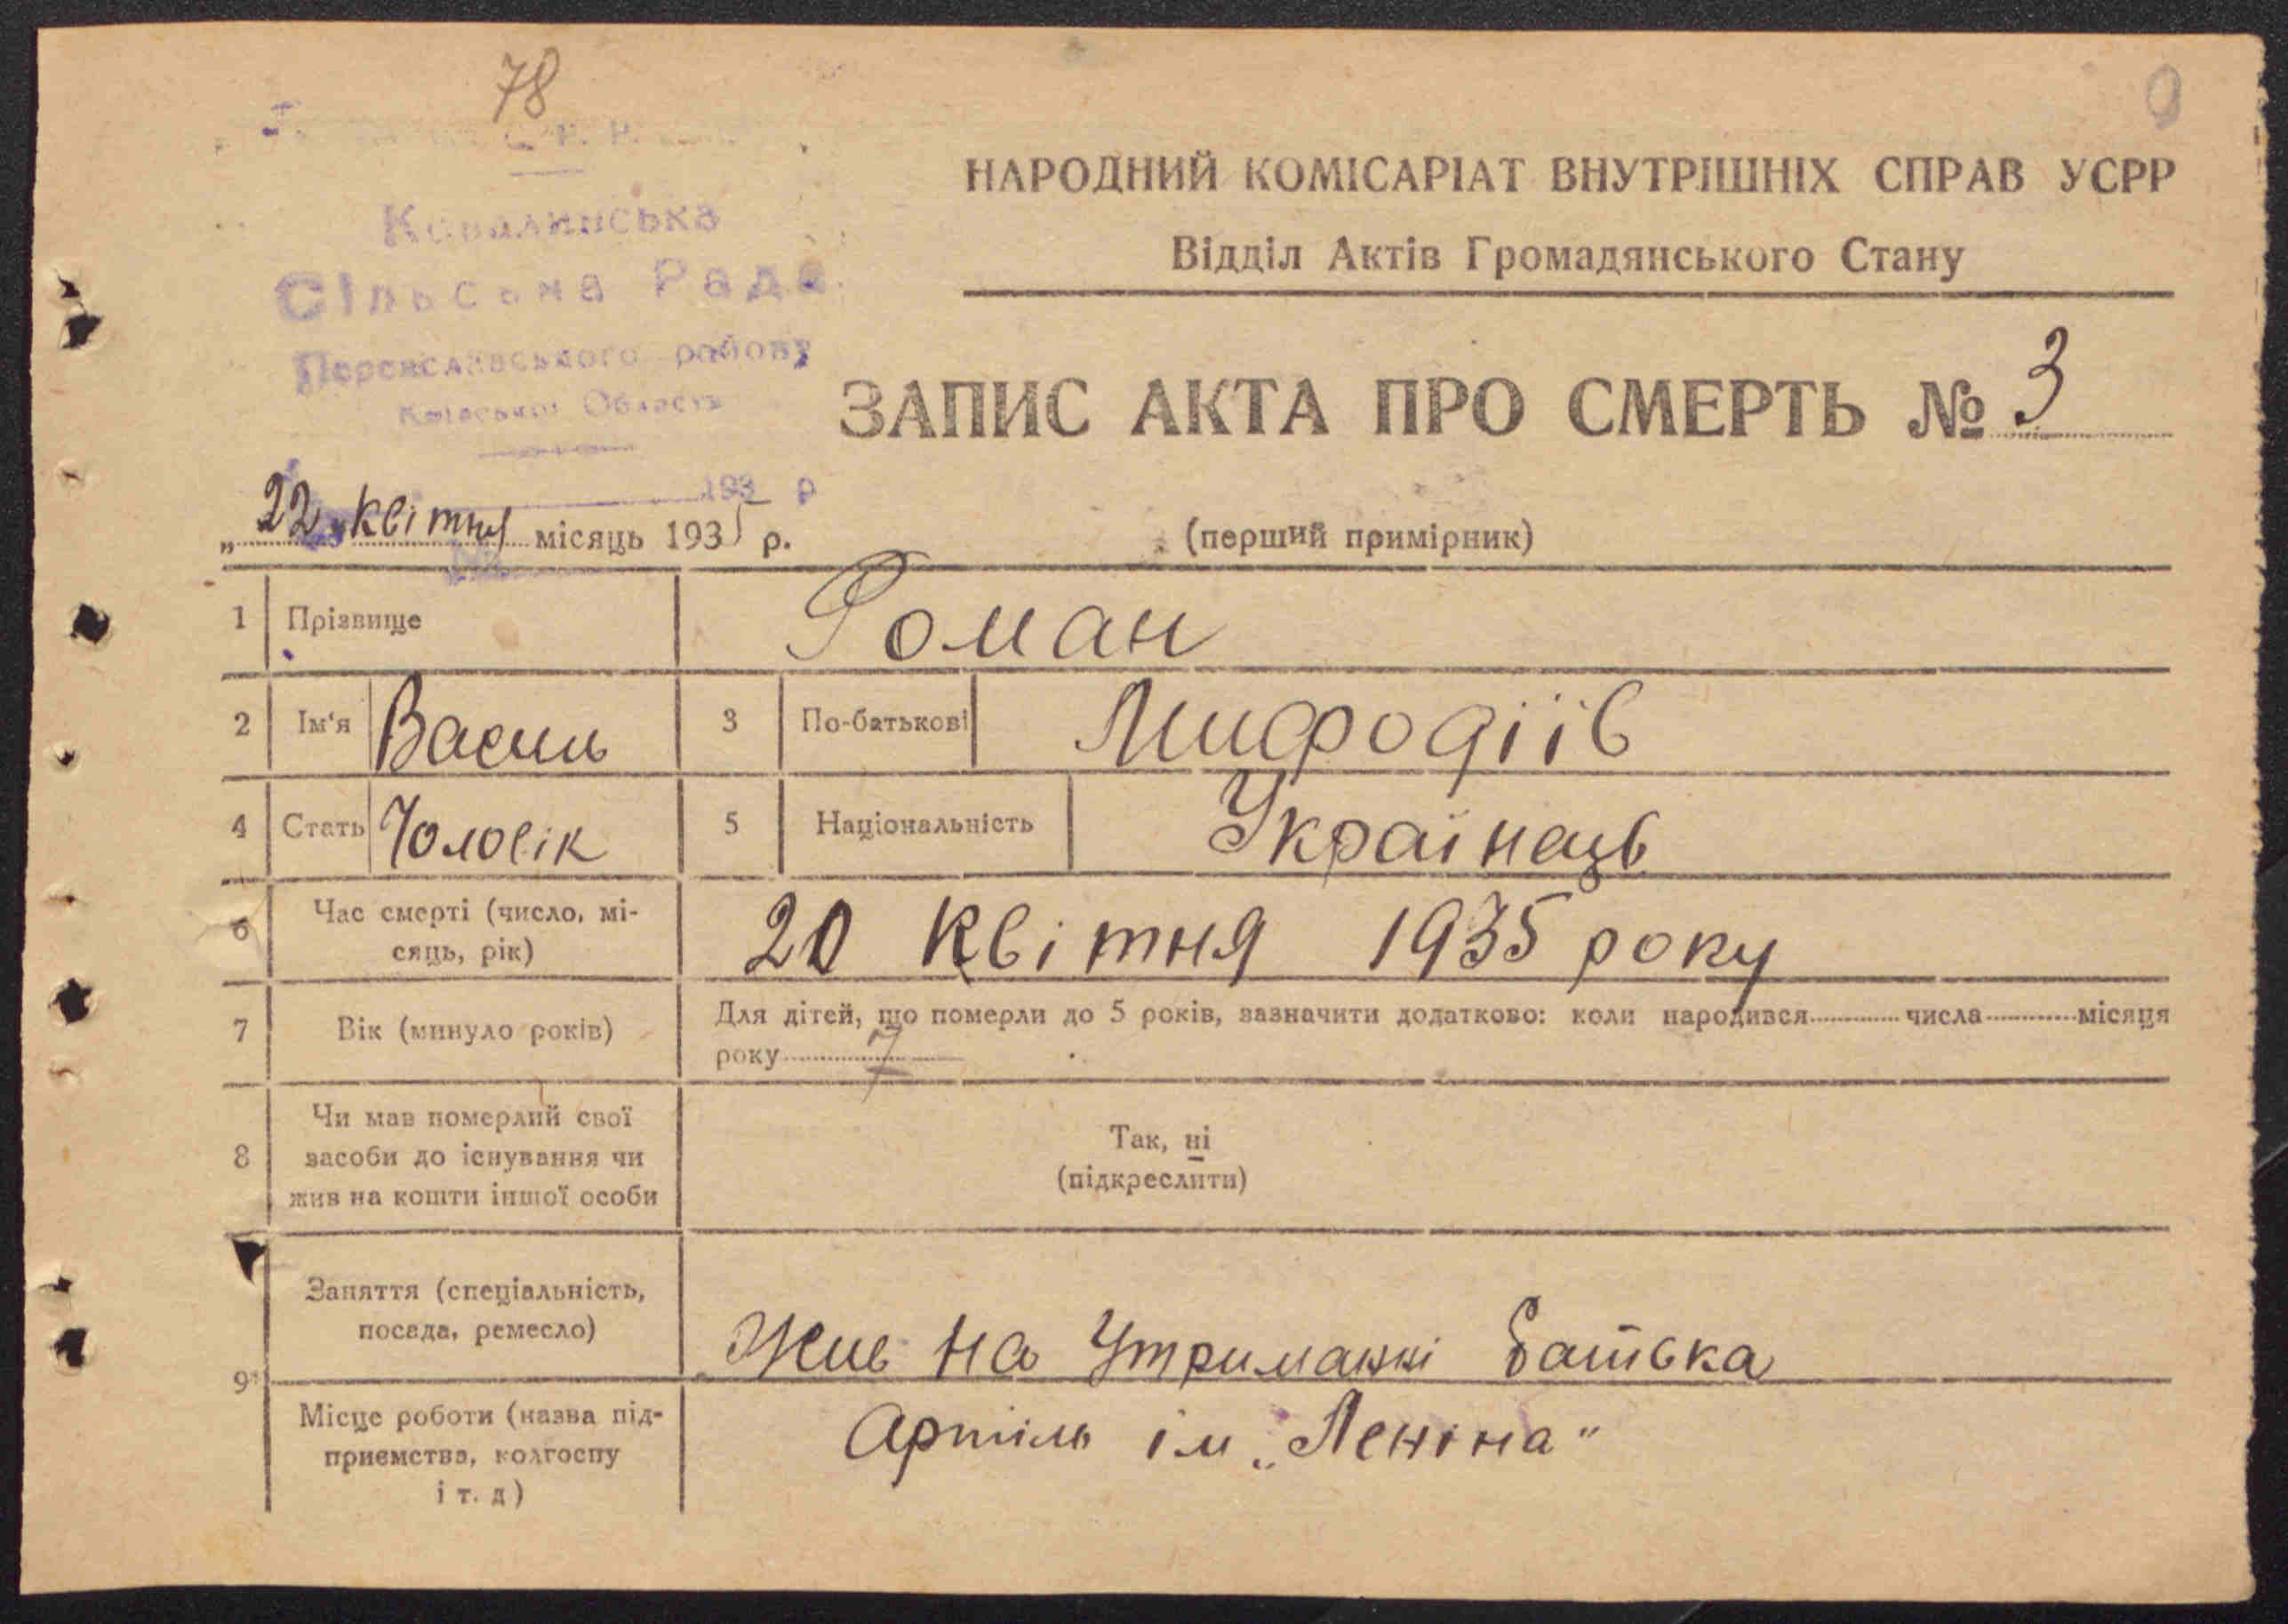 78
9
Ковалинська
Сільська Рада
Переяславського району
Київської Области
193 р
НАРОДНИЙ КОМІСАРІАТ ВНУТРІШНІХ СПРАВ УСРР
Відділ Актів Громадянського Стану
ЗАПИС АКТА ПРО СМЕРТЬ № 3
„22 квітня місяць 1935 р.
(перший примірник)
1 Прізвище Роман
2 Ім'я Василь 3 По-батькові Мифодіів
4 Стать Чоловік 5 Національність Українець
6 Час смерті (число, мі-
сяць, рік) 20 Квітня 1935 року
7 Вік (минуло років) Для дітей, що померли до 5 років, зазначити додатково: коли народився числа місяця
року 7
8 Чи мав померлий свої
засоби до існування чи
жив на кошти іншої особи
Так, ні
(підкреслити)
9 Заняття (спеціальність,
посада, ремесло) Жив на Утриманні батька
Місце роботи (назва під-
приємства, колгоспу
і т. д) Артіль ім „Леніна"